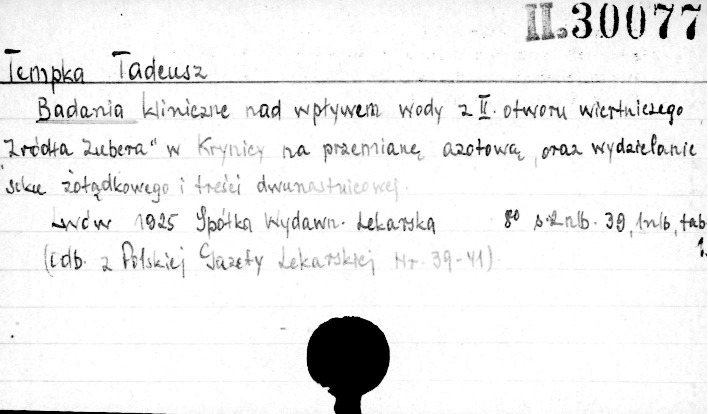 II.30077
Tempka Tadeusz
Badania kliniczne nad wpływem wody z II. otworu wiertniczego
"Źródła Zubera" w Krynicy na przemianę azotową oraz wydzielanie
soku żołądkowego i treści dwunastnicowej.
Lwów 1925 Spółka Wydawn. Lekarska 8° s. 2 nlb. 39, 1 nlb, tab.
1.
(odb. z Polskiej Gazety Lekarskiej Nr. 39-41).